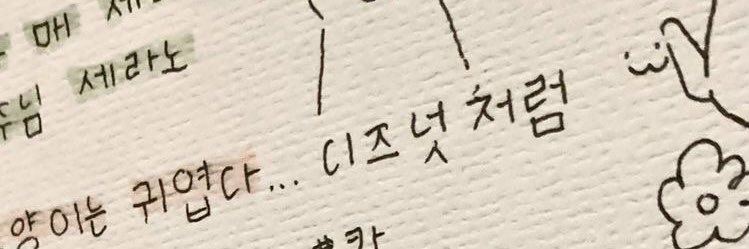 매
주님 세라노
양이는 귀엽다... 디즈넛처럼